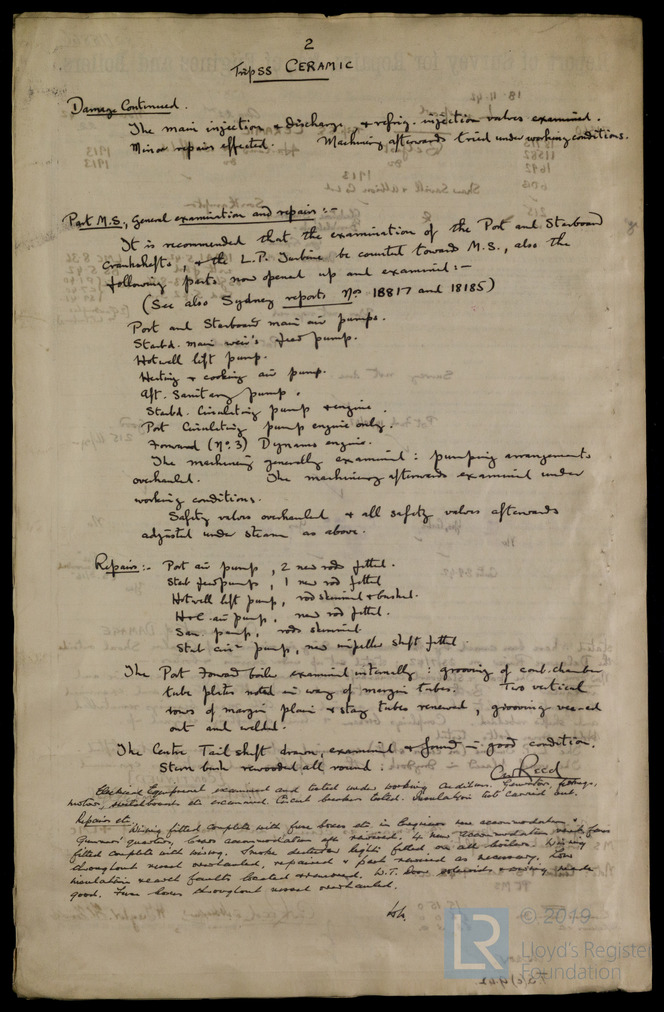 2
TripSS CERAMIC
Damage Continued.
The main injection & discharge, & refrig. injection valves examined.
Minor repairs effected. Machinery afterwards tried under working conditions.
Part M.S., General examination and repairs :-
It is recommended that the examination of the Port and Starboard
Crankshafts, & the L.P. Turbine be counted toward M.S., also the
following parts now opened up and examined :-
(See also Sydney reports Nos 18817 and 18185)
Port and Starboard main air pumps.
Starbd. main weir's feed pump.
Hotwell lift pump.
Heating & cooking air pump.
Aft. Sanitary pump.
Starbd. Circulating pump & engine.
Port Circulating pump engine only.
Forward (No. 3) Dynamo engine.
The machinery generally examined : pumping arrangements
overhauled. The machinery afterwards examined under
working conditions.
Safety valves overhauled & all safety valves afterwards
adjusted under steam as above.
Repairs :- Port air pump, 2 new rods fitted.
Stbd feed pumps, 1 new rod fitted
Hotwell lift pump, rod skimmed & bushed.
H & C air pump, new rod fitted.
San. pump, rods skimmed.
Stbd circ. pump, new impeller shaft fitted.
The Port Forward boiler examined internally : grooving of comb. chamber
tube plates noted in way of margin tubes. Two vertical
rows of margin plain & stay tubes renewed, grooving vee-ed
out and welded.
The Centre Tail shaft drawn, examined & found in good condition.
Stern bush rewooded all round.
Electrical Equipment examined and tested under working conditions. Generator, fittings,
motors, switchboards etc examined. Circuit breakers tested. Insulation test carried out.
Repairs etc.
Wiring fitted complete with fuse boxes etc. in Engineers new accommodation &
Gunners' quarters, accommodation aft rewired. 4 new accommodation fans
fitted complete with wiring. Smoke detector lights fitted on all boilers. Wiring
throughout vessel overhauled, repaired & part renewed as necessary. Low
insulation & earth faults located & removed. W.T. Door & wiring made
good. Fuse boxes throughout vessel overhauled.
© 2019
LR
Lloyd's Register
Foundation